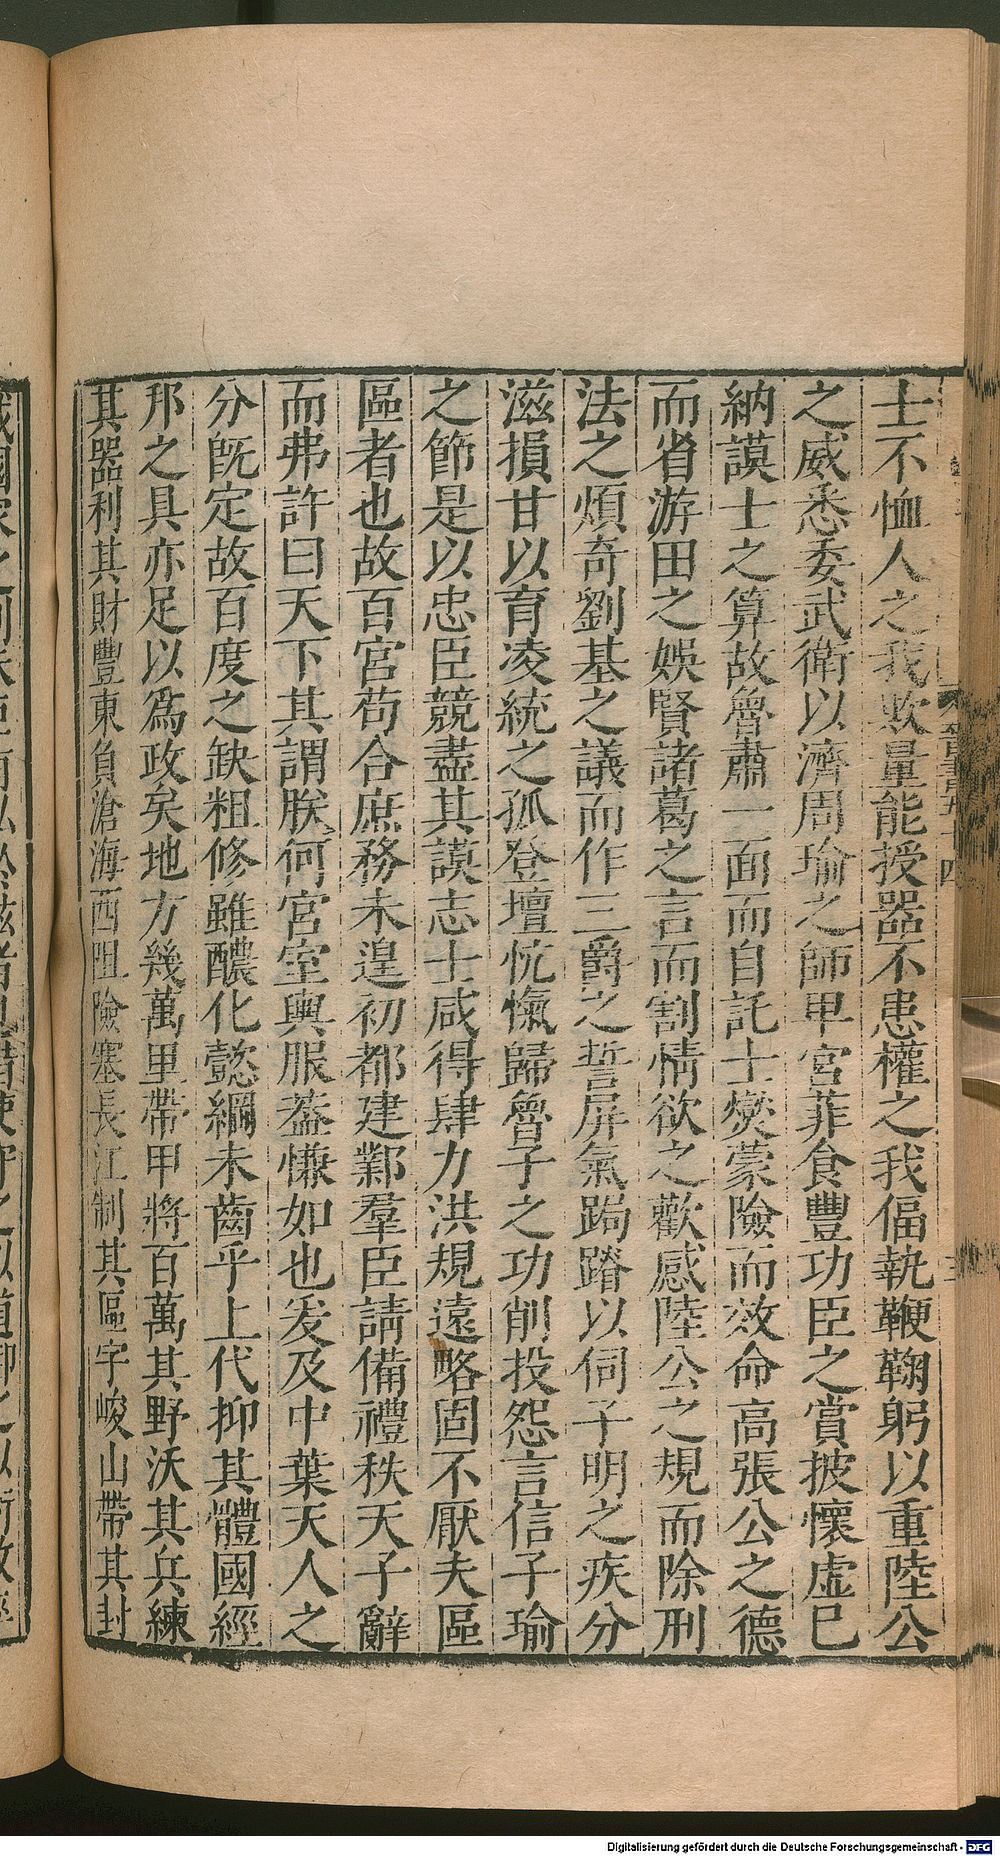 士不恤人之我欺量能授器不患權之我偪執鞭鞠躬以重陸公
之威悉委武衛以濟周瑜之師卑宮菲食豐功臣之賞披懷虛巳
納謨士之算故魯肅一面而自託士燮蒙險而效命高張公之德
而省游田之娛賢諸葛之言而割情欲之歡感陸公之規而除刑
法之煩奇劉基之議而作三爵之誓屏氣跼蹐以伺子明之疾分
滋損甘以育凌統之孤登壇忼愾歸魯子之功削投怨言信子瑜
之節是以忠臣競盡其謨志士咸得肆力洪規遠略固不厭夫區
區者也故百官苟合庶務未遑初都建鄴羣臣請備禮秩天子辭
而弗許曰天下其謂朕何宮室輿服蓋慊如也爰及中葉天人之
分旣定故百度之缺粗修雖醲化懿綱未齒乎上代抑其體國經
邦之具亦足以爲政矣地方幾萬里帶甲將百萬其野沃其兵練
其器利其財豐東負滄海西阻險塞長江制其區宇峻山帶其封
Digitalisierung gefördert durch die Deutsche Forschungsgemeinschaft - DFG